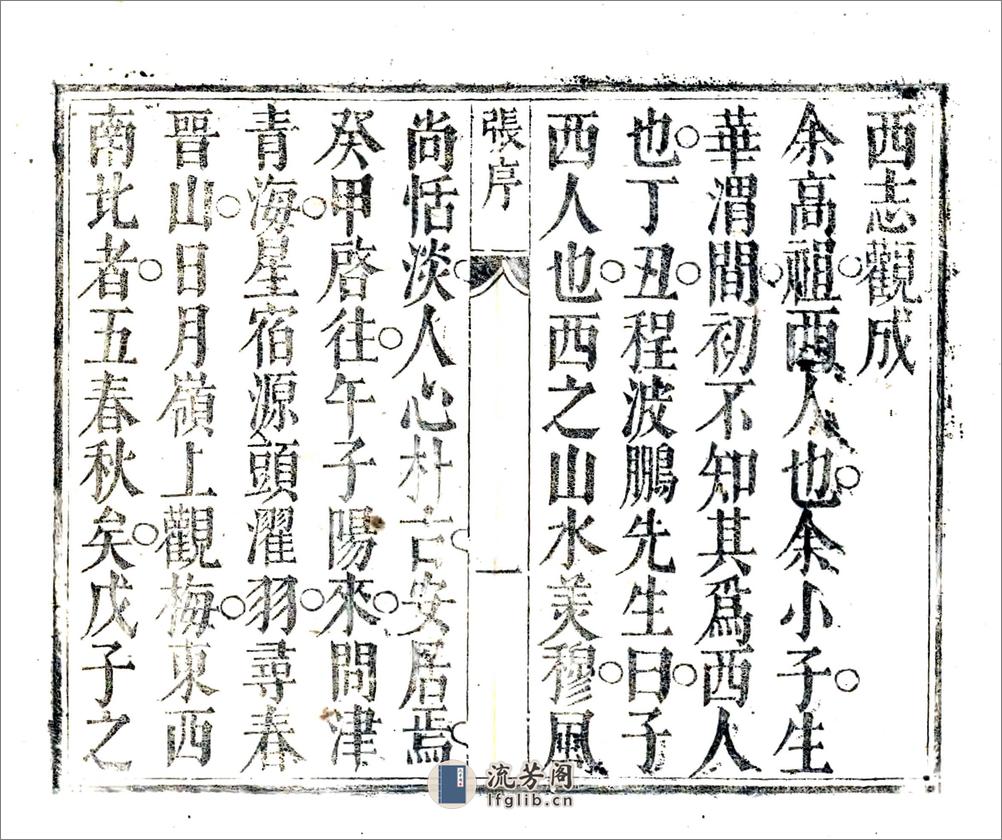 西志觀成
余高祖酉人也余小子生
華渭間初不知其爲西人
也丁丑程波鵬先生曰子
西人也西之山水美穆風
張序
一
尚恬淡人心朴古安居焉
癸甲啓往午子陽來問津
青海星宿源頭濯羽尋春
晋山日月嶺上觀梅東西
南北者五春秋矣戊子之
流芳阁
lfglib.cn